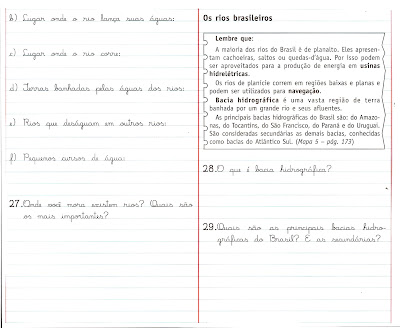 b) Lugar onde o rio lança suas águas:
c) Lugar onde o rio corre:
d) Terras banhadas pelas águas dos rios:
e) Rios que deságuam em outros rios:
f) Pequenos cursos de água:
27. Onde você mora existem rios? Quais são
os mais importantes?
Os rios brasileiros
Lembre que:
A maioria dos rios do Brasil é de planalto. Eles apresen-
tam cachoeiras, saltos ou quedas-d'água. Por isso podem
ser aproveitados para a produção de energia em usinas
hidrelétricas.
Os rios de planície correm em regiões baixas e planas e
podem ser utilizados para navegação.
Bacia hidrográfica é uma vasta região de terra
banhada por um grande rio e seus afluentes.
As principais bacias hidrográficas do Brasil são: do Amazo-
nas, do Tocantins, do São Francisco, do Paraná e do Uruguai.
São consideradas secundárias as demais bacias, conhecidas
como bacias do Atlântico Sul. (Mapa 5 – pág. 173)
28. O que é bacia hidrográfica?
29. Quais são as principais bacias hidro-
gráficas do Brasil? E as secundárias?